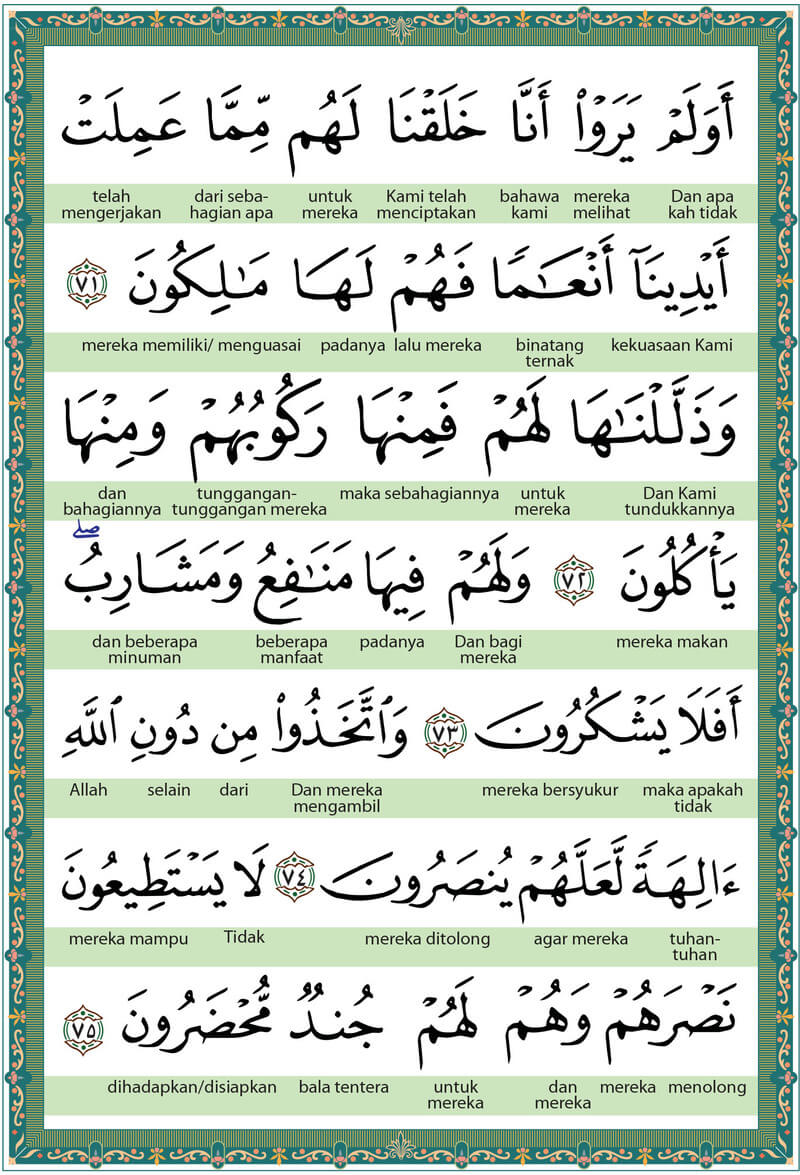 أَوَلَمْ يَرَوْا۟ أَنَّا خَلَقْنَا لَهُم مِّمَّا عَمِلَتْ
Dan apa kah tidak mereka melihat bahawa kami Kami telah menciptakan untuk mereka dari seba-hagian apa telah mengerjakan
أَيْدِينَآ أَنْعَـٰمًا فَهُمْ لَهَا مَـٰلِكُونَ ٧١
kekuasaan Kami binatang ternak lalu mereka padanya mereka memiliki/ menguasai
وَذَلَّلْنَـٰهَا لَهُمْ فَمِنْهَا رَكُوبُهُمْ وَمِنْهَا
Dan Kami tundukkannya untuk mereka maka sebahagiannya tunggangan-tunggangan mereka dan bahagiannya
يَأْكُلُونَ ٧٢ وَلَهُمْ فِيهَا مَنَـٰفِعُ وَمَشَارِبُ ۖ
mereka makan Dan bagi mereka padanya beberapa manfaat dan beberapa minuman
أَفَلَا يَشْكُرُونَ ٧٣ وَٱتَّخَذُوا۟ مِن دُونِ ٱللَّهِ
maka apakah tidak mereka bersyukur Dan mereka mengambil dari selain Allah
ءَالِهَةً لَّعَلَّهُمْ يُنصَرُونَ ٧٤ لَا يَسْتَطِيعُونَ
tuhan-tuhan agar mereka mereka ditolong Tidak mereka mampu
نَصْرَهُمْ وَهُمْ لَهُمْ جُندٌ مُّحْضَرُونَ ٧٥
menolong mereka dan mereka untuk mereka bala tentera dihadapkan/disiapkan